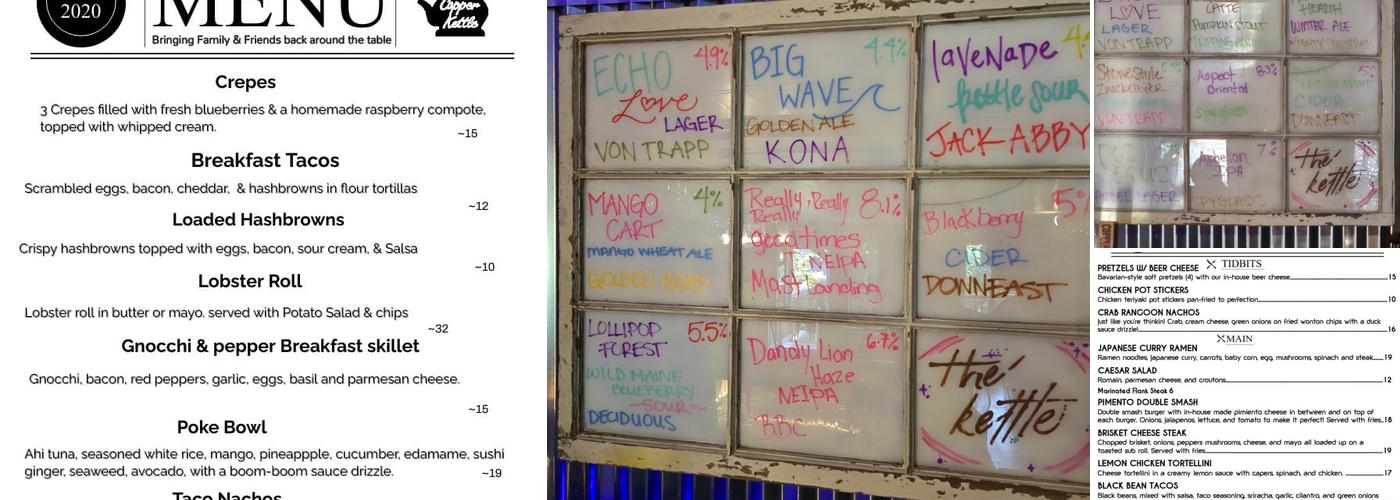 2020
MENU
Copper
Kettle
Bringing Family & Friends back around the table
Crepes
3 Crepes filled with fresh blueberries & a homemade raspberry compote,
topped with whipped cream.
~15
Breakfast Tacos
Scrambled eggs, bacon, cheddar, & hashbrowns in flour tortillas
~12
Loaded Hashbrowns
Crispy hashbrowns topped with eggs, bacon, sour cream, & Salsa
~10
Lobster Roll
Lobster roll in butter or mayo. served with Potato Salad & chips
~32
Gnocchi & pepper Breakfast skillet
Gnocchi, bacon, red peppers, garlic, eggs, basil and parmesan cheese.
~15
Poke Bowl
Ahi tuna, seasoned white rice, mango, pineappple, cucumber, edamame, sushi
ginger, seaweed, avocado, with a boom-boom sauce drizzle.
~19
Taco Nachos
ECHO 4.9%
Love
LAGER
VON TRAPP
BIG 4.4%
WAVE
GOLDEN ALE
KONA
lavenade
kettle sour
JACK ABBY
MANGO 4%
CART
MANGO WHEAT ALE
GOLDEN ROAD
Really, Really 8.1%
Really
good times
NEIPA
Mast Landing
Blackberry 5%
CIDER
DOWNEAST
LOLLIPOP 5.5%
FOREST
WILD MAINE
BLUEBERRY
~SOUR~
DECIDUOUS
Dandy Lion 6.7%
Haze
NEIPA
BBC
the
kettle
LOVE
LAGER
VON TRAPP
LATTE
PUMPKIN STOUT
HEARTH
WINTER ALE
StoweStyle
Zwickelbier
VON TRAPP
Aspect 8.3%
Oriented
Spyglass
5%
CIDER
DOWNEAST
LAGER
7%
IPA
SPYGLASS
the
kettle
TIDBITS
PRETZELS W/ BEER CHEESE
Bavarian-style soft pretzels (4) with our in-house beer cheese 15
CHICKEN POT STICKERS
Chicken teriyaki pot stickers pan-fried to perfection 10
CRAB RANGOON NACHOS
Just like you're thinkin! Crab, cream cheese, green onions on fried wonton chips with a duck
sauce drizzle! 16
MAIN
JAPANESE CURRY RAMEN
Ramen noodles, japanese curry, carrots, baby corn, egg, mushrooms, spinach and steak 19
CAESAR SALAD
Romain, parmesan cheese, and croutons 12
Marinated Flank Steak 6
PIMENTO DOUBLE SMASH
Double smash burger with in-house made pimiento cheese in between and on top of
each burger. Onions, jalapenos, lettuce, and tomato to make it perfect! Served with fries 18
BRISKET CHEESE STEAK
Chopped brisket, onions, peppers mushrooms, cheese, and mayo all loaded up on a
toasted sub roll. Served with fries 19
LEMON CHICKEN TORTELLINI
Cheese tortellini in a creamy lemon sauce with capers, spinach, and chicken. 17
BLACK BEAN TACOS
Black beans, mixed with salsa, taco seasoning, sriracha, garlic, cilantro, and green onions